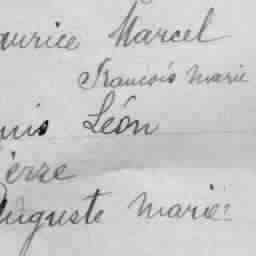 aurice Marcel
François Marie
ouis Léon
ierre
Auguste Marie